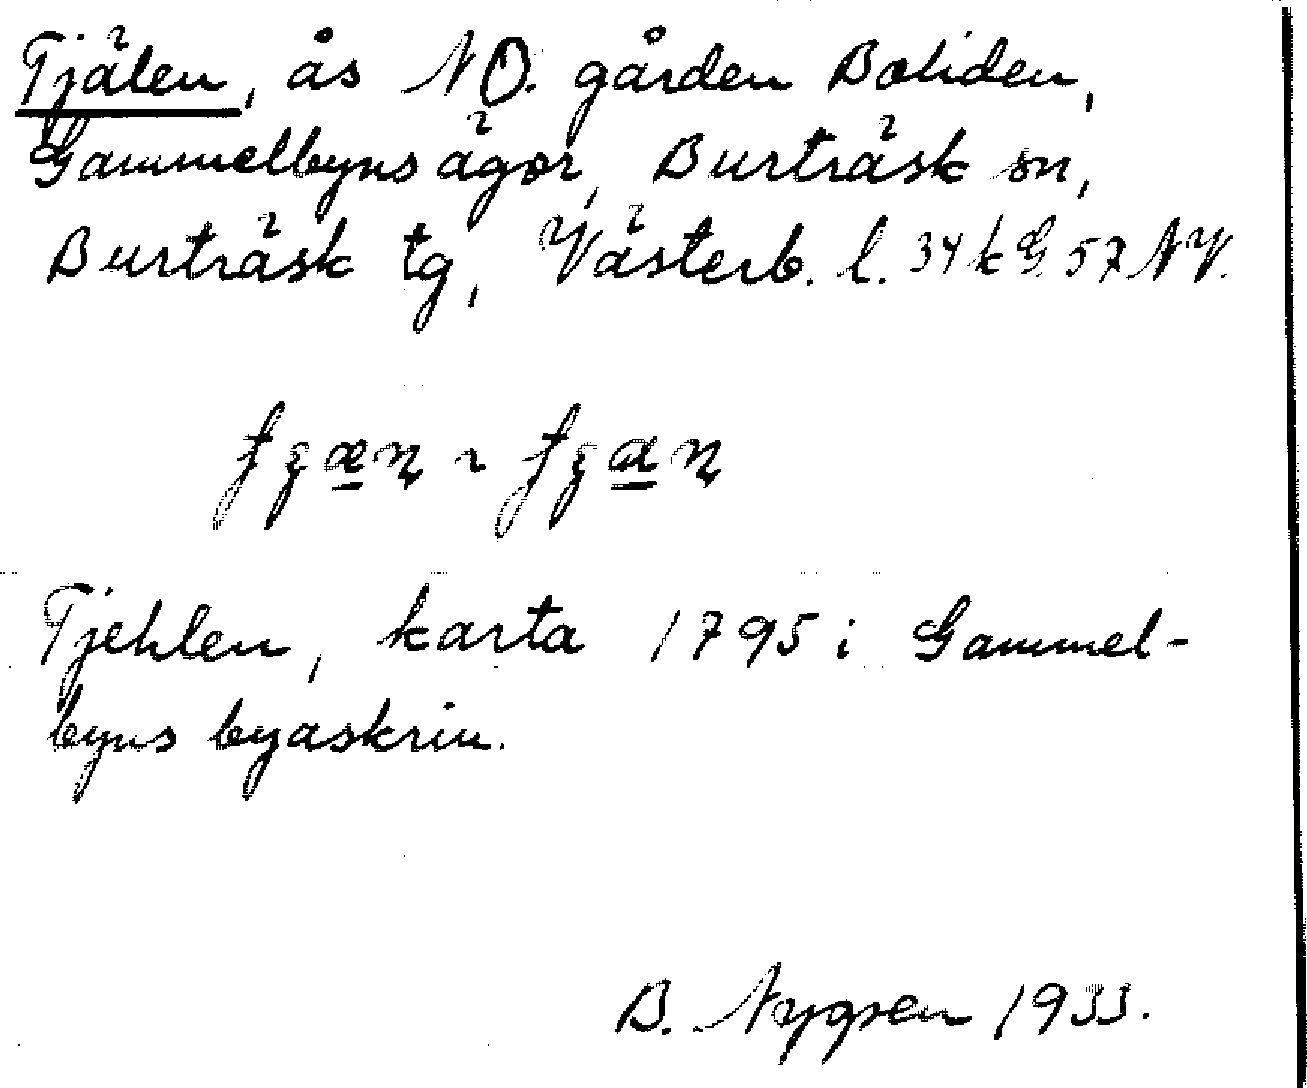 Tjälen, ås NO. gården Boliden,
Gammelbyns ägor, Burträsk sn,
Burträsk tg, Västerb. l. 34 k G. 57 NV.
Tjehlen, karta 1795 i Gammel-
byns byaskrin.
B. Nygren 1933.